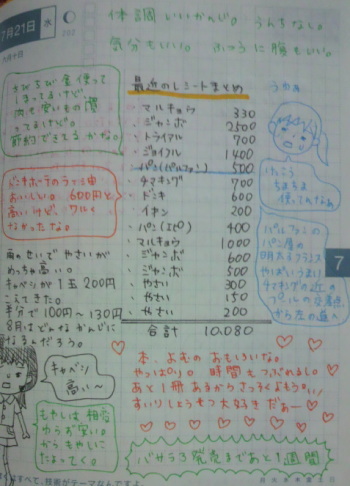 7月21日 水
202
体調いいかんじ。うんちなし。
気分もいい。ふつうに腸もいい。
最近のレシートまとめ
・マルキョウ 330
・ジャンボ 2500
・トライアル 700
・ジョイフル 1400
・パン(パルファン) 500
・タマキング 700
・ドンキ 600
・イオン 200
・パン(エピ) 400
・マルキョウ 1000
・ジャンボ 600
・ジャンボ 500
・やさい 300
・やさい 150
・やさい 200
合計 10,080
ちびちび金使って
しまってるけど
肉も安いもの
ってるけど。
節約できてるかな。
ドンキホーテのラー油
おいしい。600円と
高いけど、ワルく
なかったな。
雨のせいでやさいが
めっちゃ高い。
キャベツが1玉200円
こえてきた。
半分で100円〜130円
8月はどんなかんじに
なるんだろう。
キャベツ
高い〜
もやしは相変
わらず安い。
からもやしに
たよってく。
うかぁ
けっこう
ちまちま
使ってんなぁ
パルファンの
パン屋の
明太フランス
やばいうまい
タマキングの近の
プールの交差点
から左の道へ
7
本、よむの おもしろいな。
やっぱり。時間もつぶれるし。
あと1冊あるからさっそくよもう。
すいりしょうせつ大好きだぁー
バサラ3発売まであと1週間
すべて、技術がテーマなんですよ。